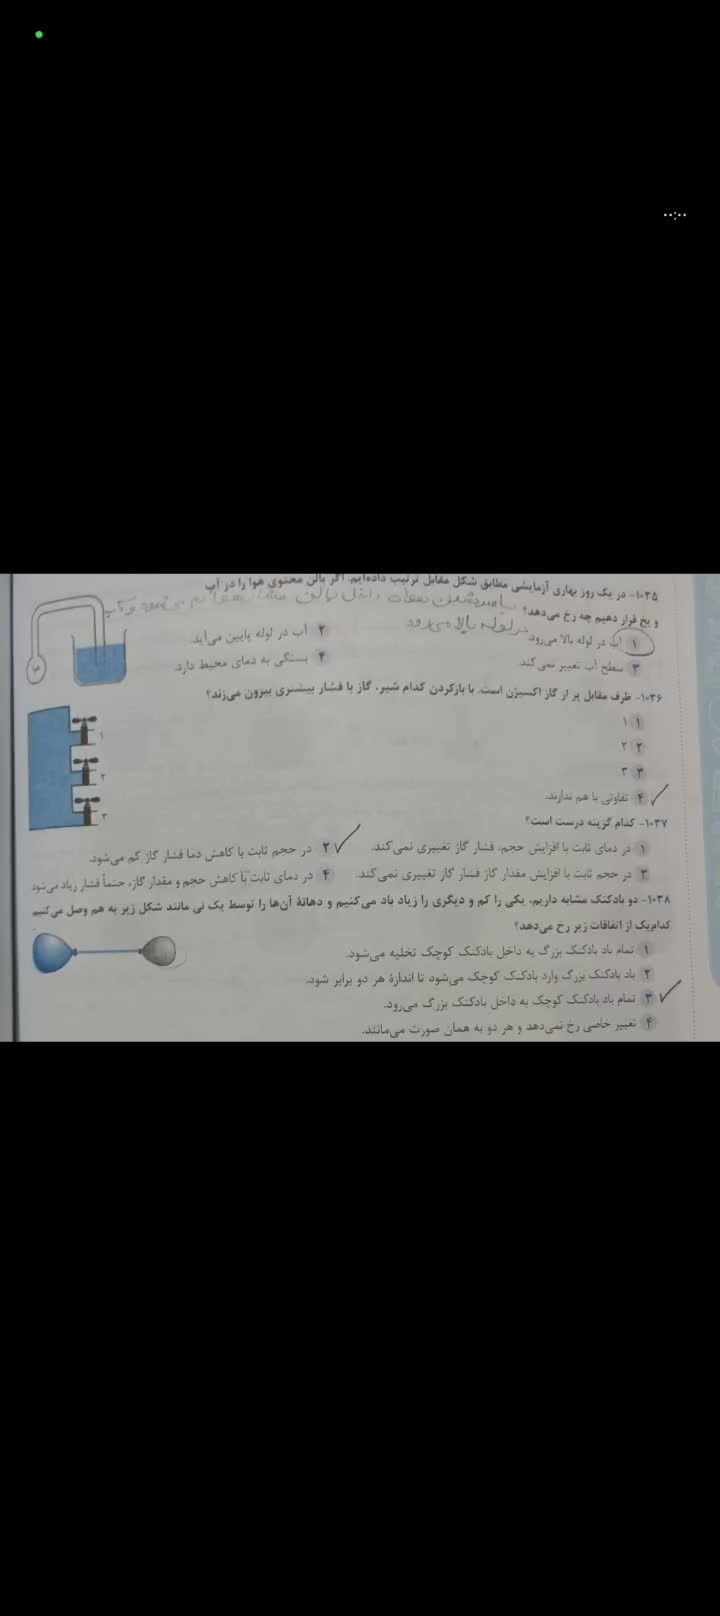 ۱۰۳۵- در یک روز بهاری آزمایشی مطابق شکل مقابل ترتیب داده‌ایم. اگر بالن محتوی هوا را در آب
و یخ قرار دهیم چه رخ می‌دهد؟
۱ آب در لوله بالا می‌رود.
۲ آب در لوله پایین می‌آید.
۳ سطح آب تغییر نمی‌کند.
۴ بستگی به دمای محیط دارد.
در لوله بالا می‌رود
هوا
۱۰۳۶- ظرف مقابل پر از گاز اکسیژن است. با بازکردن کدام شیر، گاز با فشار بیشتری بیرون می‌زند؟
۱ ۱
۲ ۲
۳ ۳
۴ تفاوتی با هم ندارند.
۱
۲
۳
۱۰۳۷- کدام گزینه درست است؟
۱ در دمای ثابت با افزایش حجم، فشار گاز تغییری نمی‌کند.
۲ در حجم ثابت با کاهش دما فشار گاز کم می‌شود.
۳ در حجم ثابت با افزایش مقدار گاز فشار گاز تغییری نمی‌کند.
۴ در دمای ثابت با کاهش حجم و مقدار گاز، حتماً فشار زیاد می‌شود
۱۰۳۸- دو بادکنک مشابه داریم، یکی را کم و دیگری را زیاد باد می‌کنیم و دهانهٔ آن‌ها را توسط یک نی مانند شکل زیر به هم وصل می‌کنیم
کدام‌یک از اتفاقات زیر رخ می‌دهد؟
۱ تمام باد بادکنک بزرگ به داخل بادکنک کوچک تخلیه می‌شود.
۲ باد بادکنک بزرگ وارد بادکنک کوچک می‌شود تا اندازهٔ هر دو برابر شود.
۳ تمام باد بادکنک کوچک به داخل بادکنک بزرگ می‌رود.
۴ تغییر خاصی رخ نمی‌دهد و هر دو به همان صورت می‌مانند.